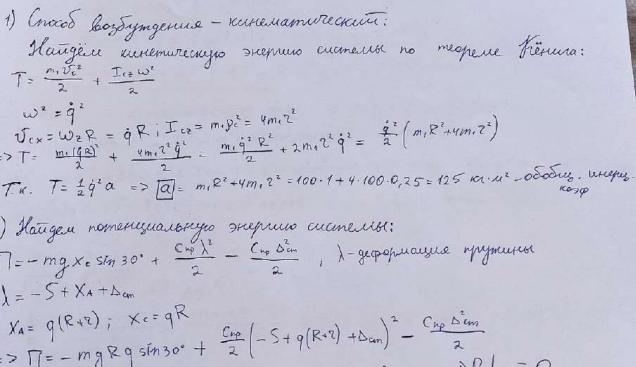 1) Способ возбуждения – кинематический:
Найдём кинетическую энергию системы по теореме Кёнига:
T = m₁v_c²/2 + I_cz ω²/2
ω² = q̇²
v_cx = ω_z R = q̇R ; I_cz = m₁ρ_c² = 4m₁r²
=> T = m₁(q̇R)²/2 + 4m₁r²q̇²/2 = m₁q̇²R²/2 + 2m₁r²q̇² = q̇²/2 (m₁R² + 4m₁r²)
Т.к. T = 1/2 q̇² a => a = m₁R² + 4m₁r² = 100·1 + 4·100·0,25 = 125 кг·м² – обобщ. инерц. коэф
) Найдем потенциальную энергию системы:
П = -mg x_c sin30° + C_пр λ²/2 - C_пр Δ²_ст/2 , λ - деформация пружины
λ = -S + x_A + Δ_ст
x_A = q(R+r) ; x_C = qR
=> П = -mgRq sin30° + C_пр/2 (-S + q(R+r) + Δ_ст)² - C_пр Δ²_ст/2